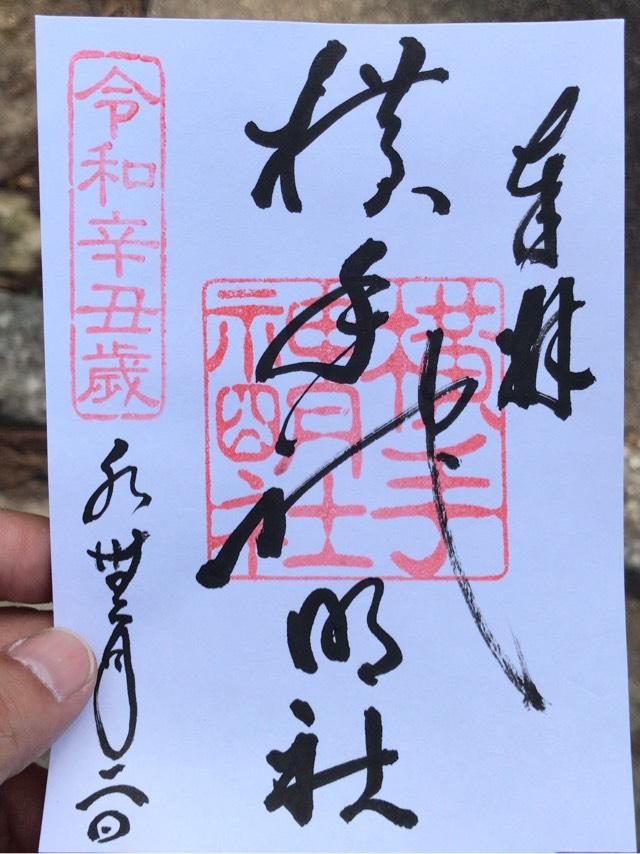 奉拝
横手神明社
横手
神明社
令和辛丑歳
月二日